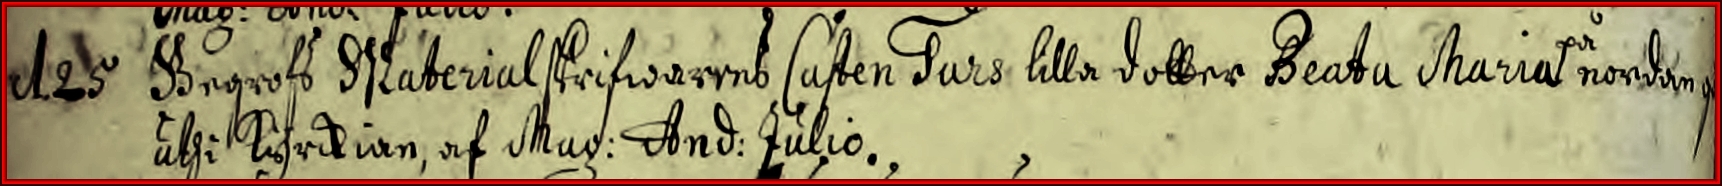 Mag: And: Julio.
d. 25 Begrofs Materialskrifwarens Casten Turs lilla dotter Beata Maria på nordan
uthi Kyrckian, af Mag: And: Julio.